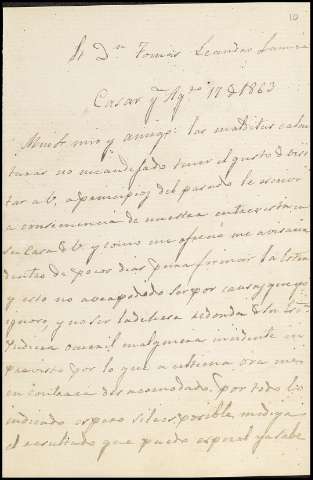 10
Sr Dn Tomás Leandro
Casar y Agto 17 de 1863
Muy Sr mio y amigo: las malditas calen
turas no me an dejado tener el gusto de visi
tar a V. a principios del pasado le escrivi
a consecuencia de nuestra entrevista en
su casa de V. y como me ofreció me avisaria
dentro de pocos dias para formar la
y esto no a podido ser por causas que yo
ignoro, y no ser la dehesa redonda
pudiera ocurrir cualquiera incidente im
previsto por lo que a ultima ora me
encontrara desacomodado, por todo lo
indicado espero si le es posible me diga
el resultado que puedo esperar ya sabe